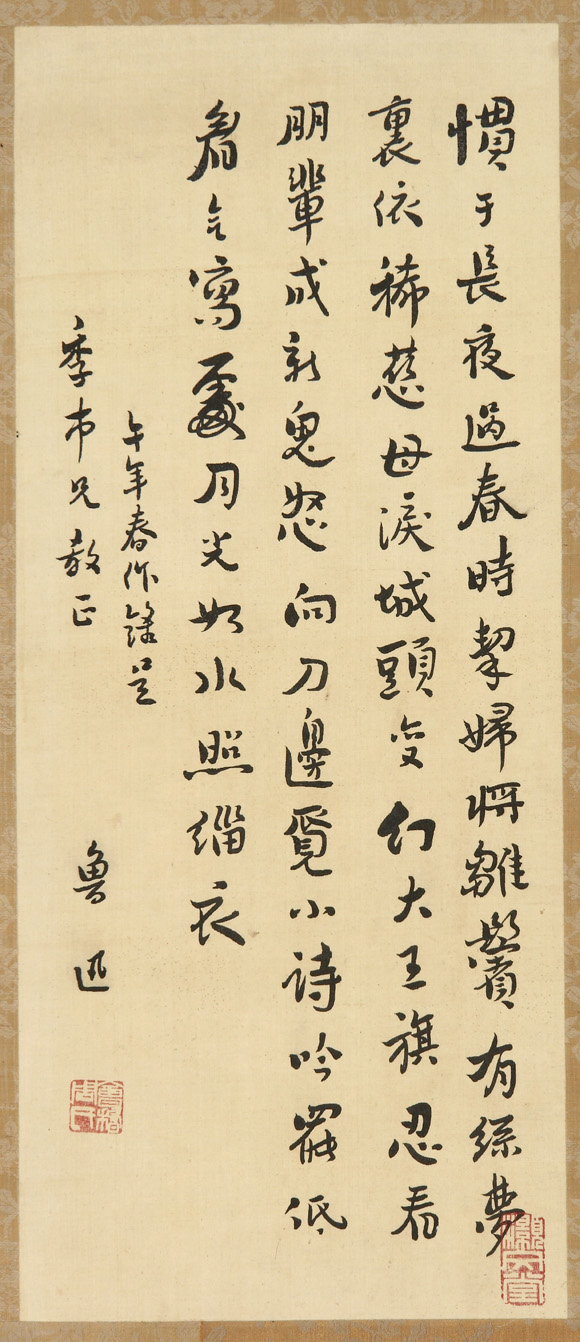 慣于長夜過春時挈婦將雛鬢有絲夢
裏依稀慈母淚城頭变幻大王旗忍看
朋輩成新鬼怒向刀邊覓小詩吟罷低
眉无寫處月光如水照緇衣
午年春作錄呈
季市兄教正
魯迅